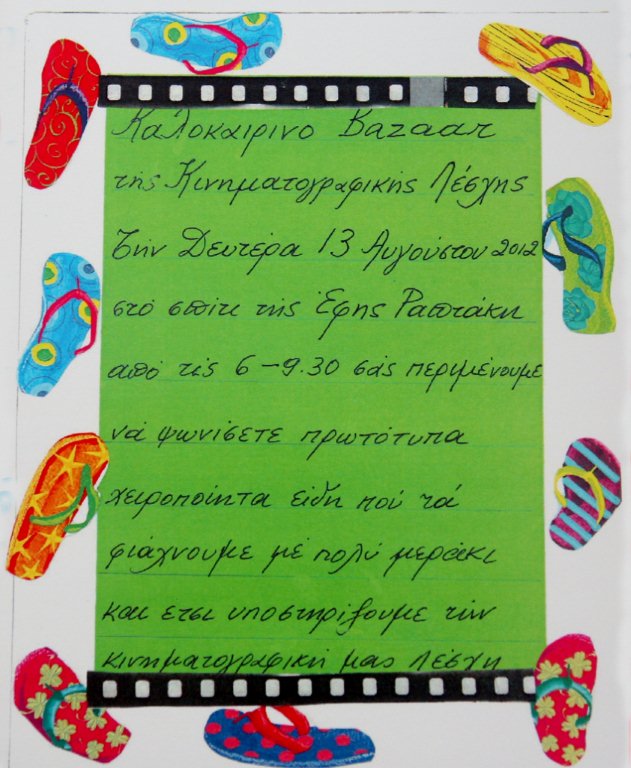 Καλοκαιρινο Bazaar
τής Κινηματογραφικής Λέσχης
Τήν Δευτέρα 13 Αυγούστου 2012
στό σπίτι τής Έφης Ραπτάκη
από τίς 6-9.30 σάς περιμένουμε
νά ψωνίσετε πρωτότυπα
χειροποίητα είδη πού τά
φιάχνουμε μέ πολύ μεράκι
και ετσι υποστηρίξουμε τήν
κινηματογραφική μας Λέσχη